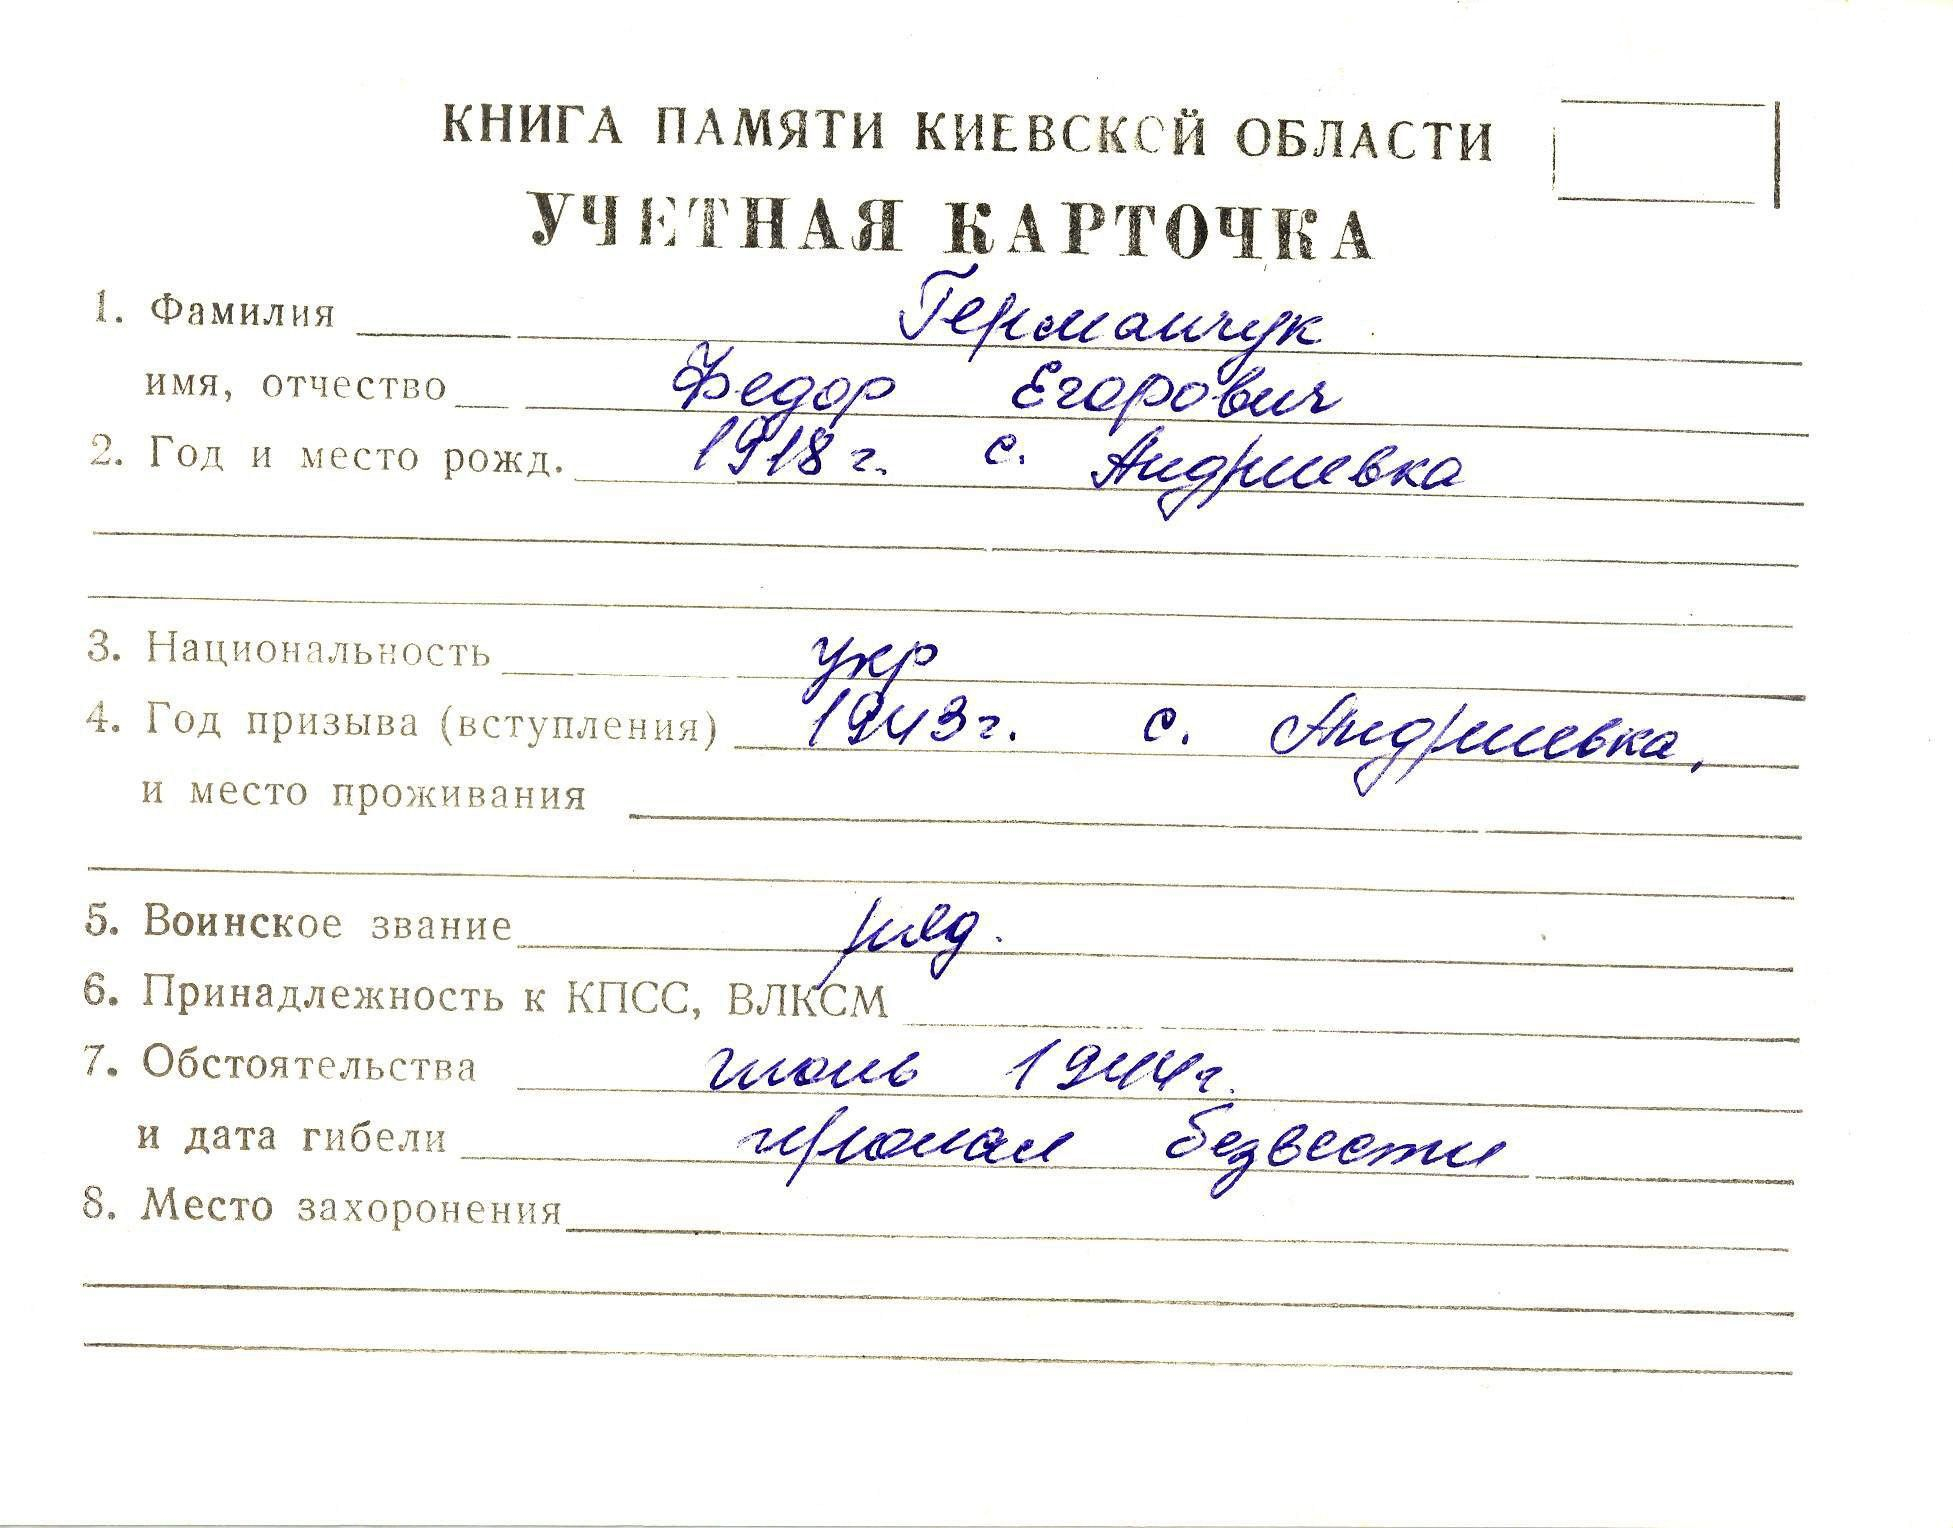 КНИГА ПАМЯТИ КИЕВСКОЙ ОБЛАСТИ
УЧЕТНАЯ КАРТОЧКА
1. Фамилия Германчук
имя, отчество Федор Егорович
2. Год и место рожд. 1918 г. с. Андриевка
3. Национальность укр
4. Год призыва (вступления) 1943 г. с. Андриевка,
и место проживания
5. Воинское звание ряд.
6. Принадлежность к КПСС, ВЛКСМ
7. Обстоятельства 1944 г.
и дата гибели пропал безвести
8. Место захоронения